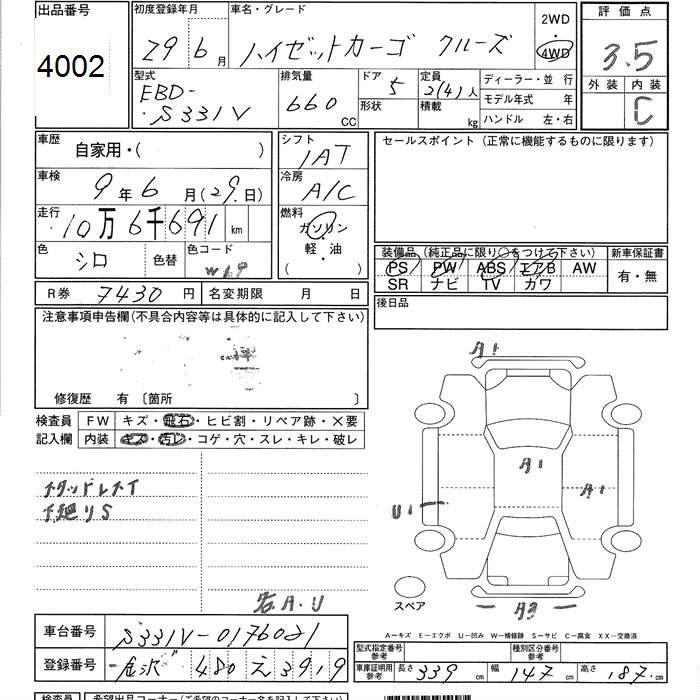 出品番号
4002
初度登録年月
29 6月
車名・グレード
ハイゼットカーゴ クルーズ
2WD
4WD
評価点
3.5
外装 内装
C
型式
EBD-
S331V
排気量
660
CC
ドア
5
形状
定員
2(4)人
積載
kg
ディーラー・並行
モデル年式 年
ハンドル 左・右
車歴
自家用・( )
車検
9年6月(29.日)
走行
10万6千691km
色
シロ
色替
色コード
W19
シフト
IAT
冷房
A/C
燃料
ガソリン
・
軽・油
( )
セールスポイント (正常に機能するものに限ります)
装備品 (純正品に限り○をつけて下さい)
PS PW ABS エアB AW
SR ナビ TV カワ
新車保証書
有・無
R券 7430円
名変期限 月 日
後日品
注意事項申告欄(不具合内容等は具体的に記入して下さい)
修復歴 有 〔箇所 〕
検査員
記入欄
FW キズ・飛石・ヒビ割・リペア跡・×要
内装 キズ・汚レ・コゲ・穴・スレ・キレ・破レ
スタッドレスT
下廻りS
名A.U
A1
A1
A1
U1
A3
スペア
A-キズ E-エクボ U-凹み W-補修跡 S-サビ C-腐食 XX-交換済
車台番号
S331V-0176021
登録番号
金沢 480 え 3919
型式指定番号
参考
種別区分番号
参考
車庫証明用
参考
長さ 339 cm
幅 147 cm
高さ 187 cm
検査員
希望出品コーナー